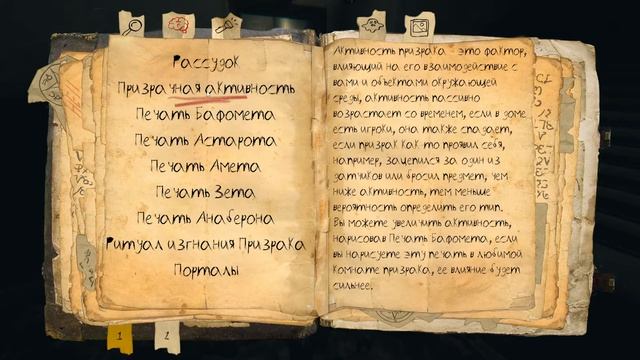 Рассудок
Призрачная активность
Печать Бафомета
Печать Астарота
Печать Амета
Печать Зета
Печать Анаберона
Ритуал изгнания Призрака
Порталы
Активность призрака - это фактор,
влияющий на его взаимодействие с
вами и объектами окружающей
среды, активность пассивно
возрастает со временем, если в доме
есть игроки, она также спадает,
если призрак как то проявил себя,
например, зацепился за один из
датчиков или бросил предмет, чем
ниже активность, тем меньше
вероятность определить его тип.
Вы можете увеличить активность,
нарисовав Печать Бафомета, если
вы нарисуете эту печать в любимой
комнате призрака, ее влияние будет
сильнее.
1
2